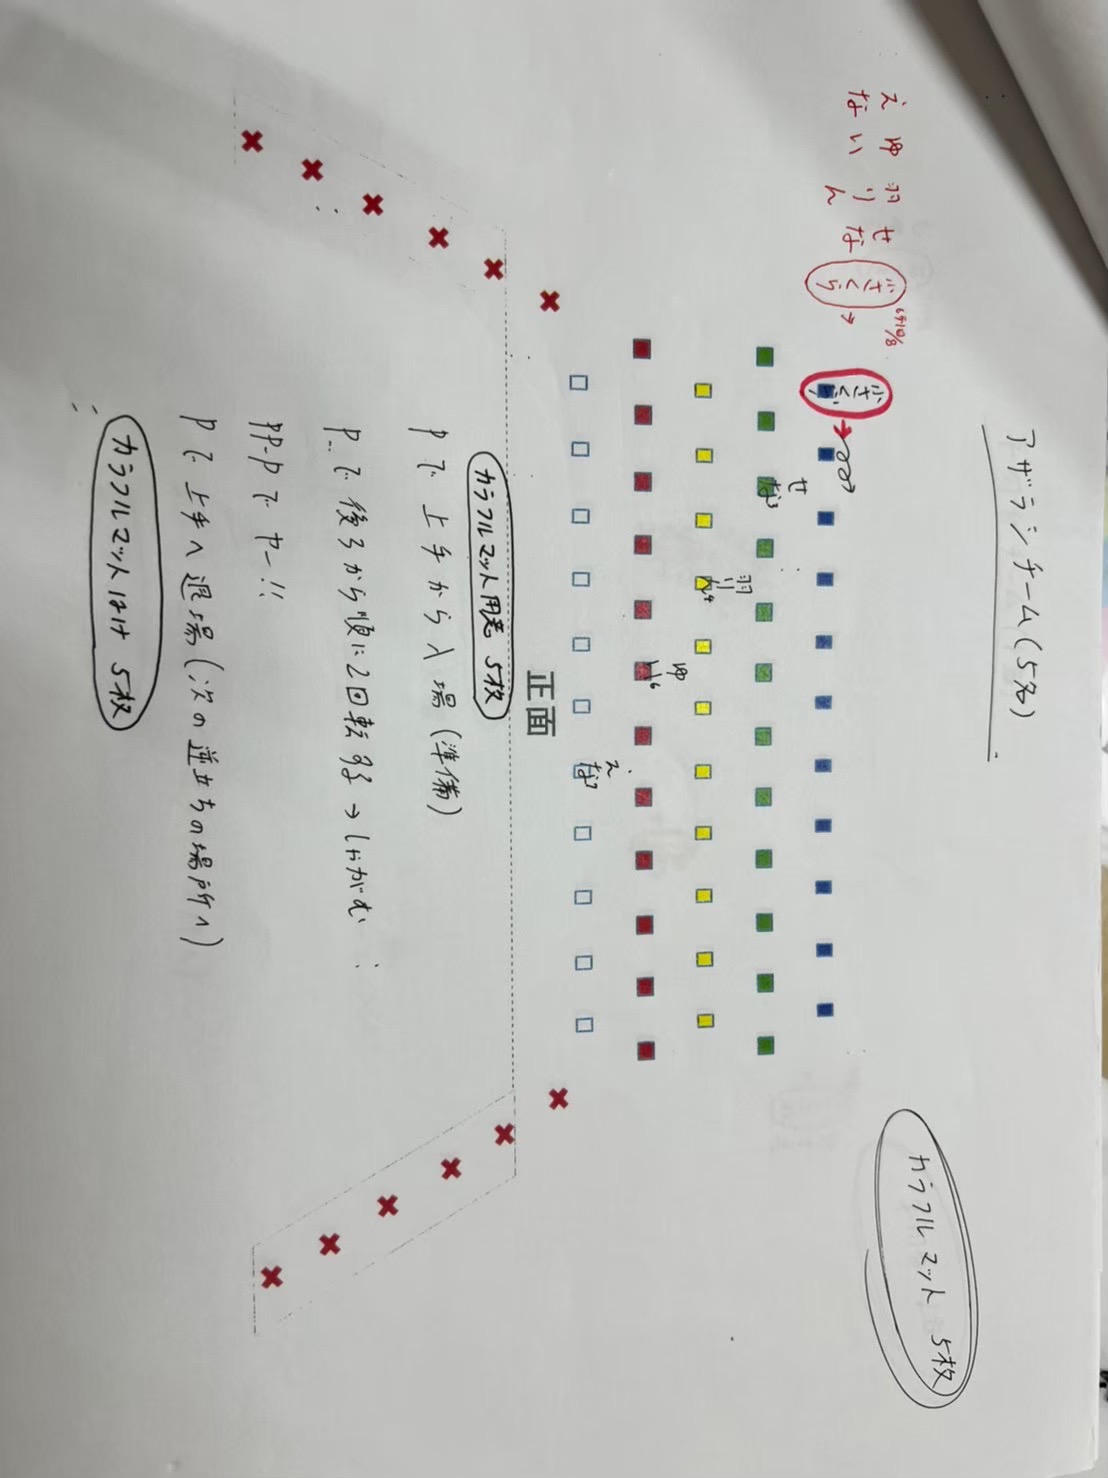 アザラシチーム(5名)
カラフルマット 5枚
え ゆ 羽 せ 小さくら
な い り な
ん
小さくら
せな3
羽り
ゆい6
えな7
正面
カラフルマット用意 5枚
Pで上手から入場(準備)
Pで後ろから順に2回転する→しゃがむ
PP-Pでヤー!!
Pで上手へ退場(次の逆立ちの場所へ)
カラフルマットはけ 5枚